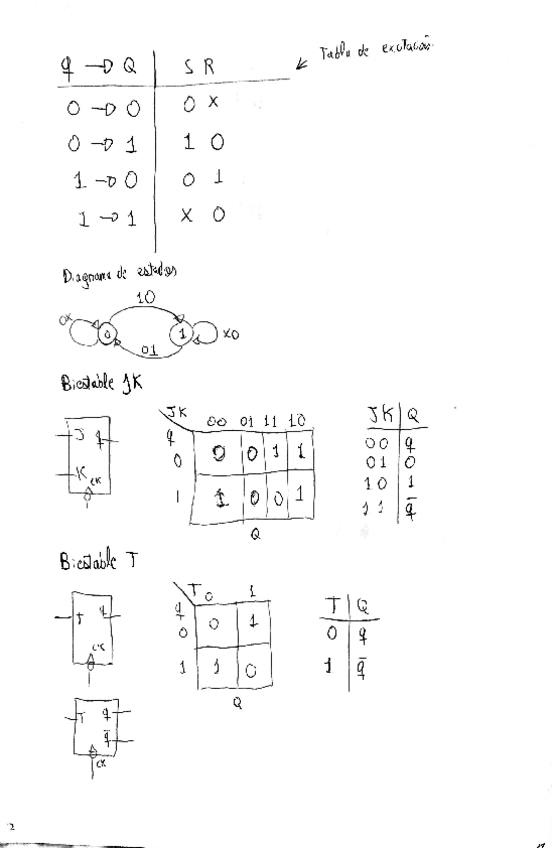 Tabla de excitación
q → Q | S R
0 → 0 | 0 X
0 → 1 | 1 0
1 → 0 | 0 1
1 → 1 | X 0
Diagrama de estados
10
0X 0 1 X0
01
Biestable JK
J q
K
CK
JK 00 01 11 10
q
0 0 0 1 1
1 1 0 0 1
Q
JK | Q
00 | q
01 | 0
10 | 1
11 | q̅
Biestable T
T q
CK
T 0 1
q
0 0 1
1 1 0
Q
T | Q
0 | q
1 | q̅
T q
q̅
CK
2